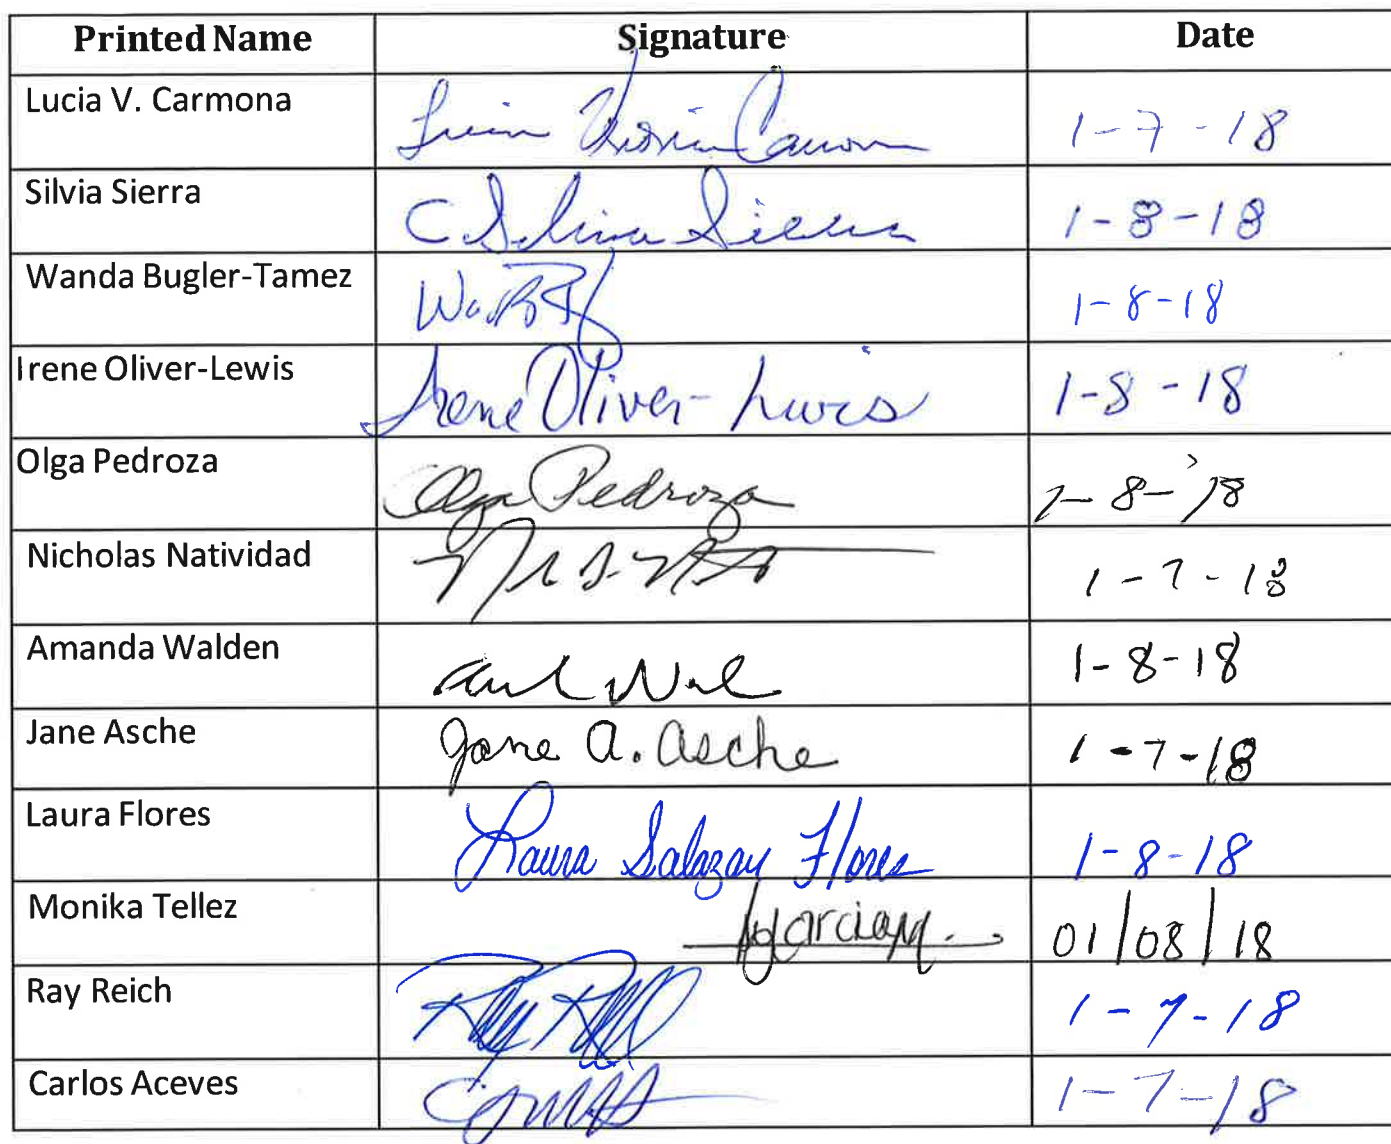 Printed Name Signature Date
Lucia V. Carmona 1-7-18
Silvia Sierra Sierra 1-8-18
Wanda Bugler-Tamez 1-8-18
Irene Oliver-Lewis Irene Oliver-Lewis 1-8-18
Olga Pedroza Olga Pedroza 1-8-'18
Nicholas Natividad 1-7-18
Amanda Walden 1-8-18
Jane Asche Jane A. Asche 1-7-18
Laura Flores Laura Salazar Flores 1-8-18
Monika Tellez 01/08/18
Ray Reich 1-7-18
Carlos Aceves 1-7-18